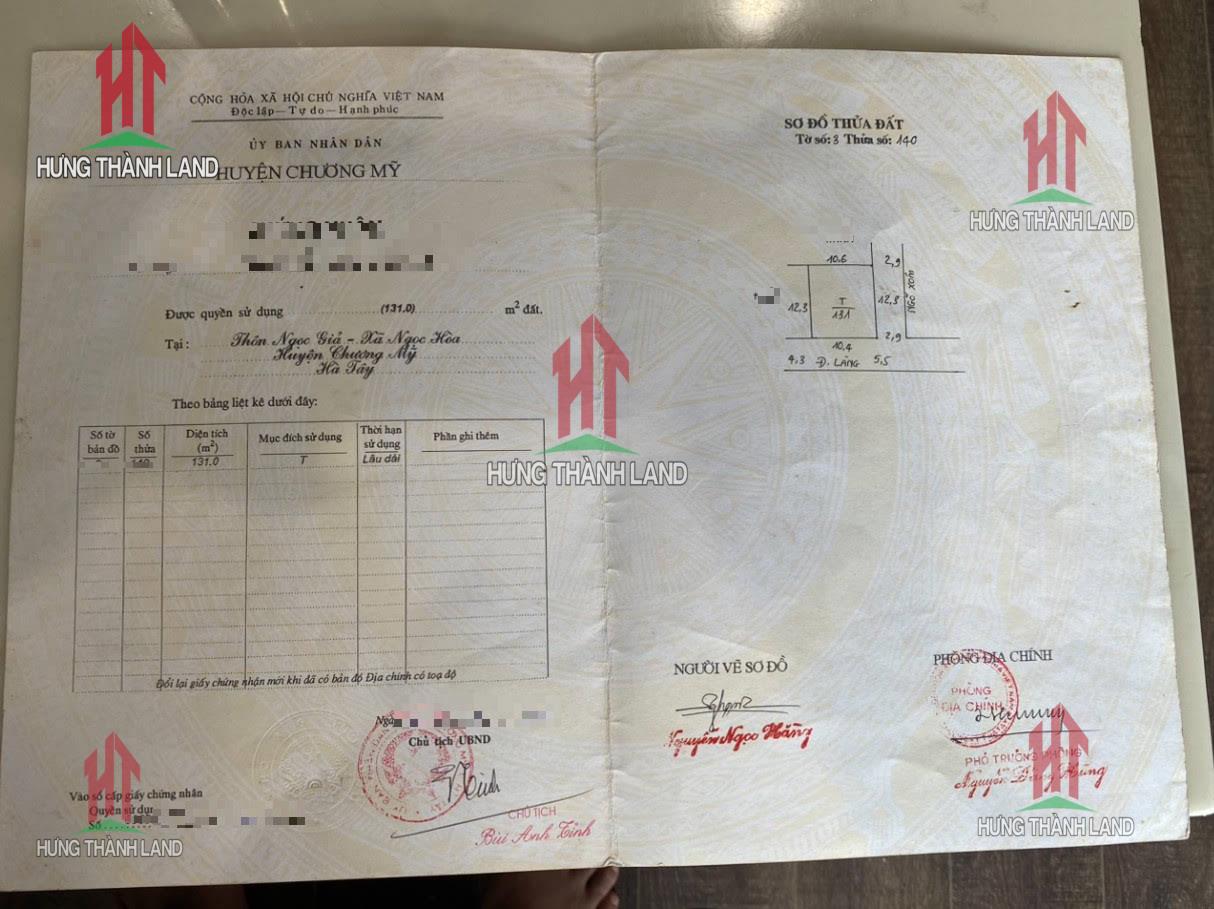 HƯNG THÀNH LAND
CỘNG HÒA XÃ HỘI CHỦ NGHĨA VIỆT NAM
Độc lập - Tự do - Hạnh phúc
ỦY BAN NHÂN DÂN
HUYỆN CHƯƠNG MỸ
Được quyền sử dụng (131.0) m² đất.
Tại: Thôn Ngọc Giả - Xã Ngọc Hòa
Huyện Chương Mỹ
Hà Tây
Theo bảng liệt kê dưới đây:
Số tờ bản đồ Số thửa Diện tích (m²) Mục đích sử dụng Thời hạn sử dụng Phần ghi thêm
131.0 T Lâu dài
Đổi lại giấy chứng nhận mới khi đã có bản đồ Địa chính có toạ độ
Chủ tịch UBND
CHỦ TỊCH
Bùi Anh Tinh
Vào sổ cấp giấy chứng nhận
Quyền sử dụ
Số
HƯNG THÀNH LAND
HƯNG THÀNH LAND
SƠ ĐỒ THỬA ĐẤT
Tờ số: 3 Thửa số: 140
HƯNG THÀNH LAND
10.6 2,9
12,3 T 12,3 NGÕ XÓM
131
10.4 2,9
4.3 Đ. LÀNG 5.5
NGƯỜI VẼ SƠ ĐỒ
Nguyễn Ngọc Hằng
PHÒNG ĐỊA CHÍNH
PHÒNG
ĐỊA CHÍNH
PHÓ TRƯỞNG PHÒNG
HƯNG THÀNH LAND